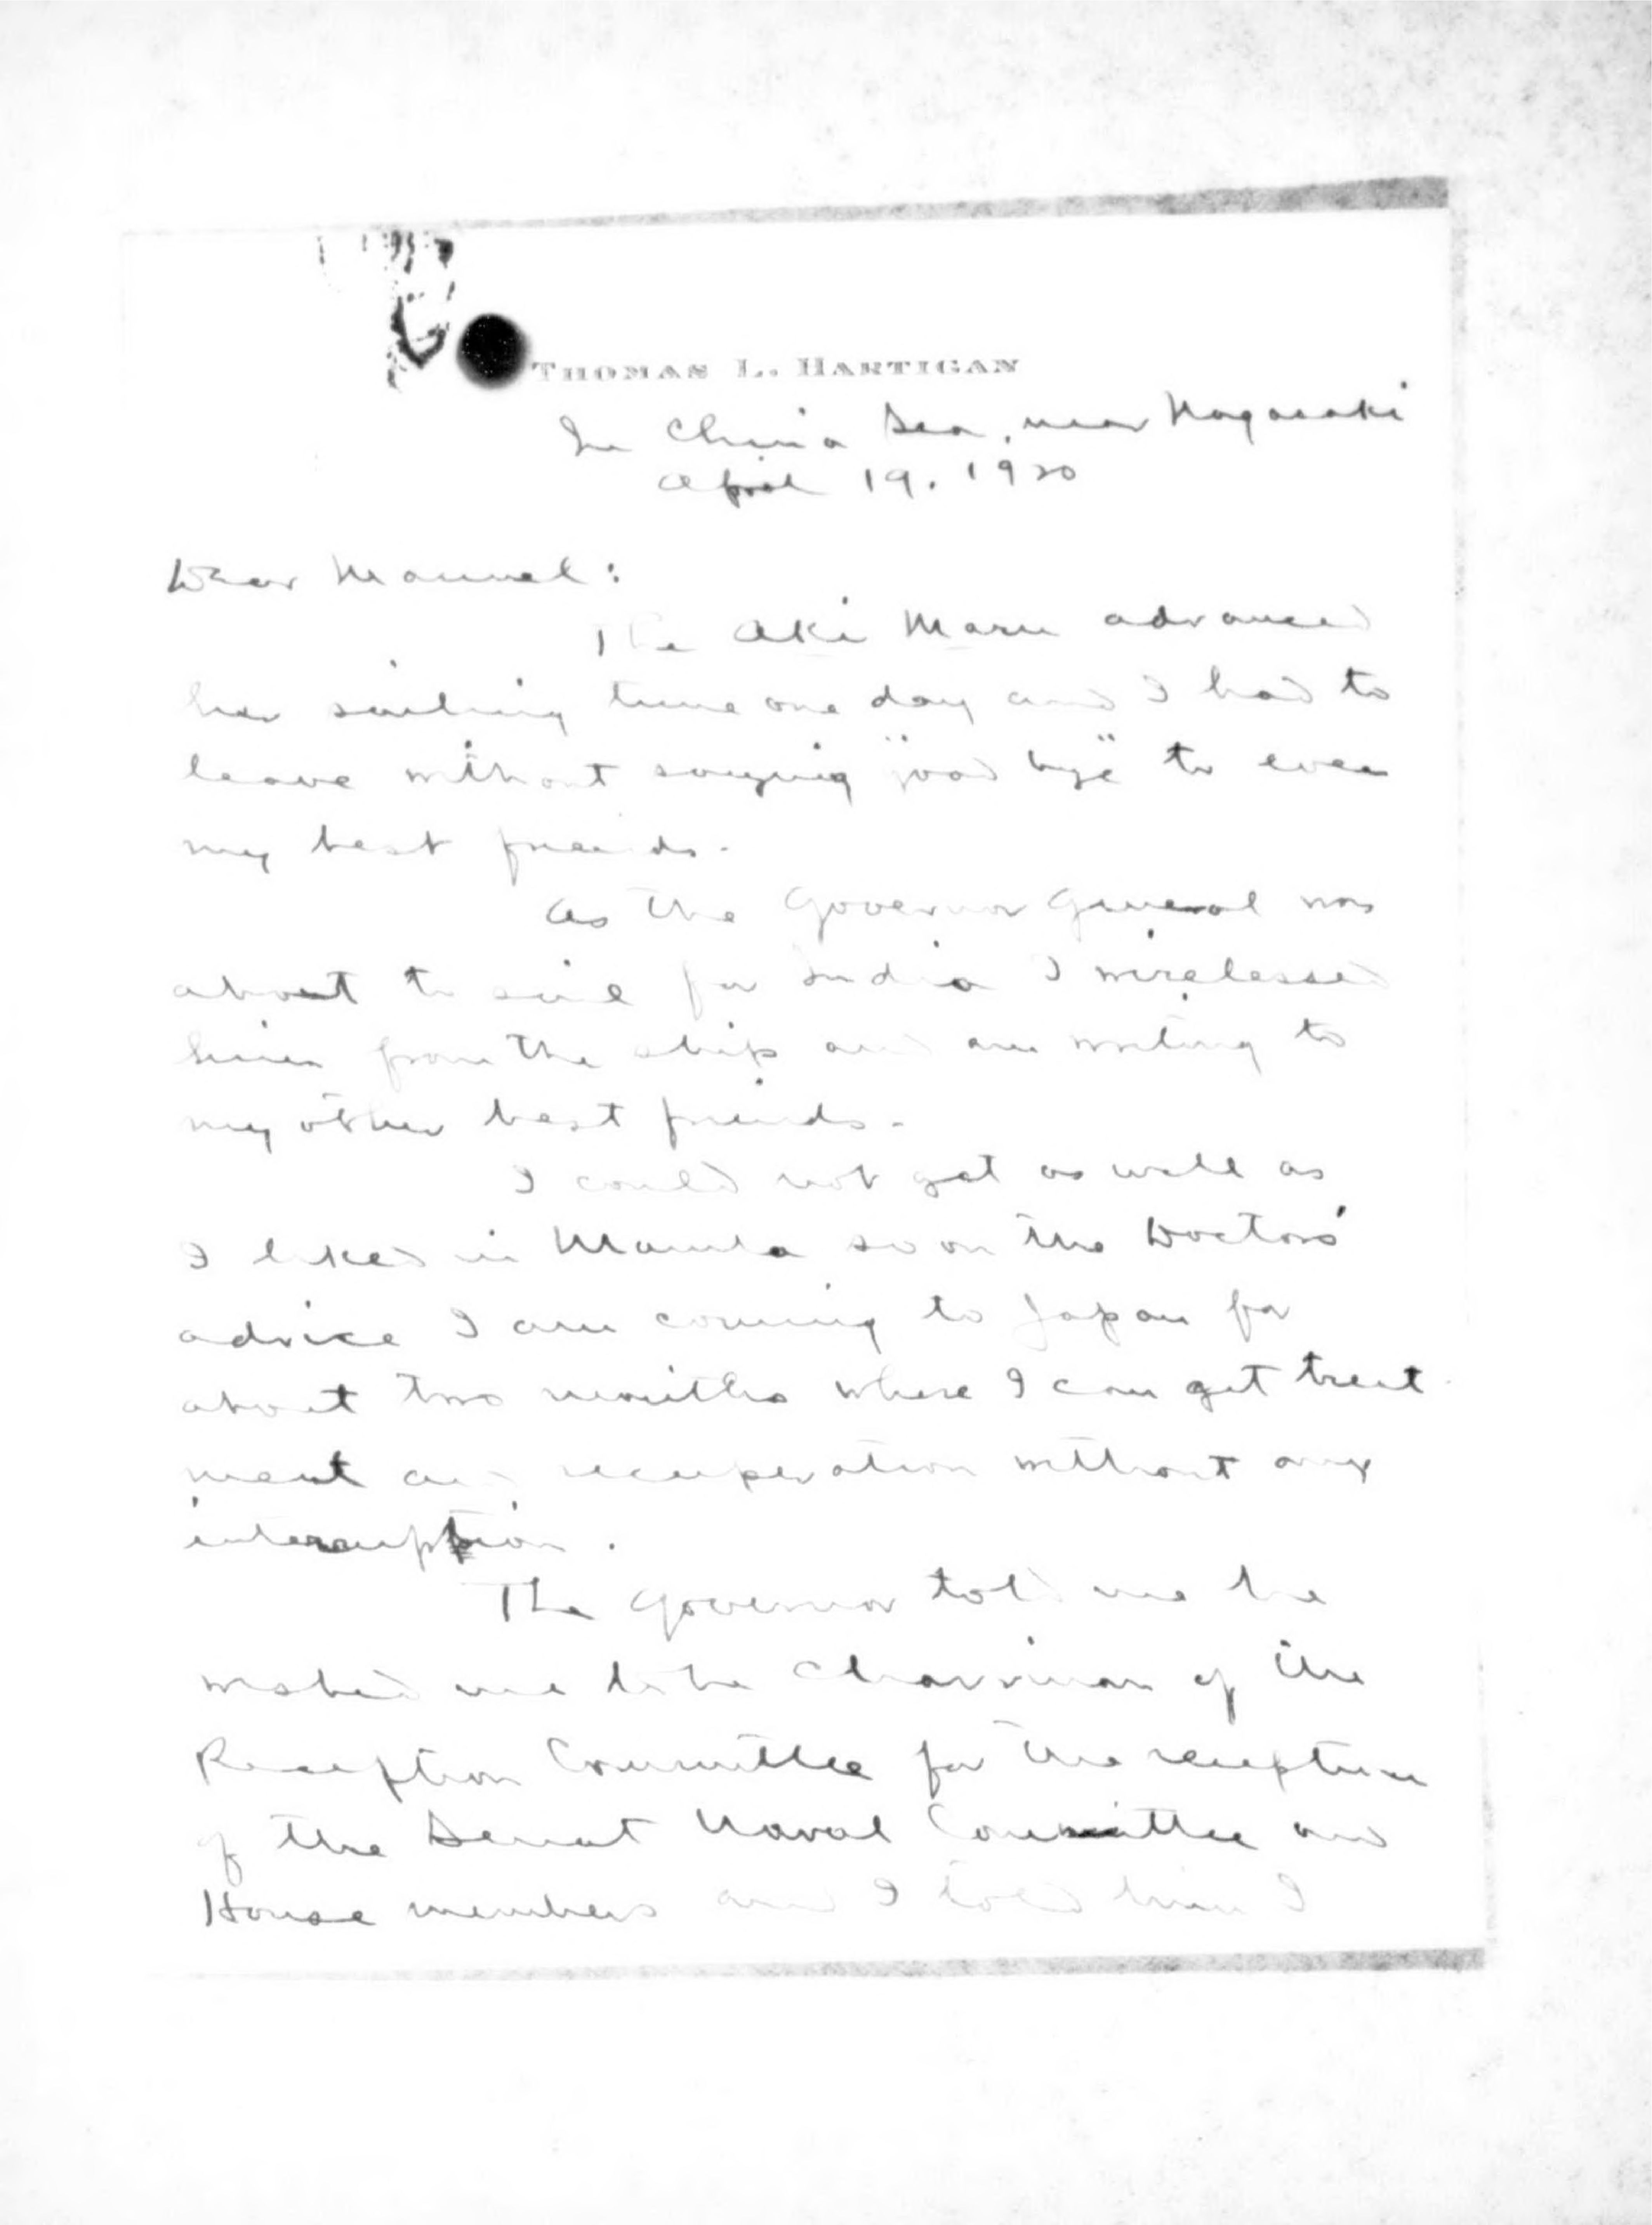 THOMAS L. HARTIGAN
In China Sea, near Nagasaki
April 19, 1920
Dear Manuel:
The Aki Maru advanced
her sailing time one day and I had to
leave without saying "good bye" to even
my best friends.
As the Governor General was
about to sail for India I wirelessed
him from the ship and am writing to
my other best friends.
I could not get as well as
I liked in Manila so on the Doctors'
advice I am coming to Japan for
about two months where I can get treat
ment and recuperation without any
interruption.
The Governor told me he
wished me to be Chairman of the
Reception Committee for the reception
of the Senat Naval Committee and
House members and I told him I